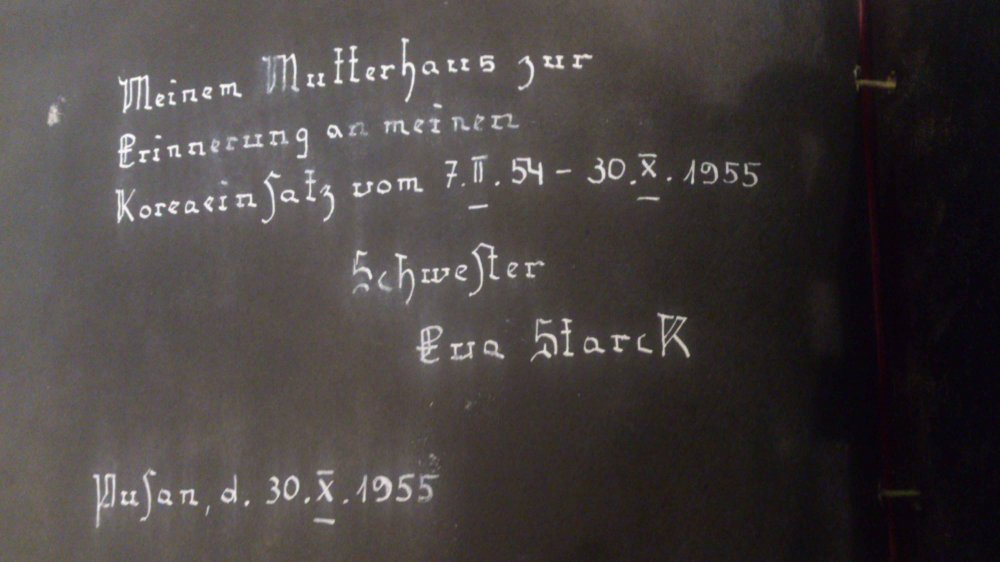 Meinem Mutterhaus zur
Erinnerung an meinen
Koreaeinſatz vom 7.II.54 – 30.X.1955
Schweſter
Eva Starck
Puſan, d. 30.X.1955